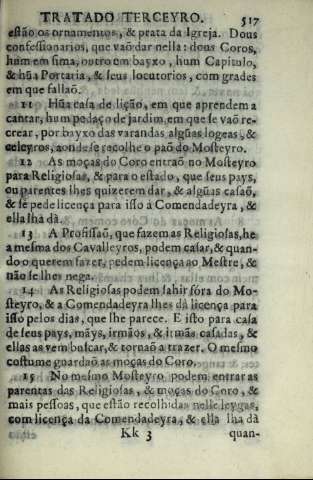 TRATADO TERCEYRO. 517
estão os ornamentos, & prata da Igreja. Dous
confessionarios, que vaõ dar nella: dous Coros,
hum em sima, outro em bayxo, hum Capitulo,
& hũa Portaria, & seus locutorios, com grades
em que fallaõ.
11 Hũa casa de lição, em que aprendem a
cantar, hum pedaço de jardim, em que se vaõ re-
crear, por bayxo das varandas algũas logeas, &
celeyros, aonde se recolhe o paõ do Mosteyro.
12 As moças do Coro entraõ no Mosteyro
para Religiosas, & para o estado, que seus pays,
ou parentes lhes quizerem dar, & algũas casaõ,
& se pede licença para isso à Comendadeyra, &
ella lha dà.
13 A Profissaõ, que fazem as Religiosas, he
a mesma dos Cavalleyros, podem casar, & quan-
do o querem fazer, pedem licença ao Mestre, &
não se lhes nega.
14 As Religiosas podem sahir fóra do Mo-
steyro, & a Comendadeyra lhes dà licença para
isso pelos dias, que lhe parece. E isto para casa
de seus pays, mãys, irmãos, & irmãs casadas, &
ellas as vem buscar, & tornaõ a trazer. O mesmo
costume guardaõ as moças do Coro.
15 No mesmo Mosteyro podem entrar as
parentas das Religiosas, & moças do Coro, &
mais pessoas, que estão recolhidas nelle leygas,
com licença da Comendadeyra, & ella lha dà
Kk 3 quan-